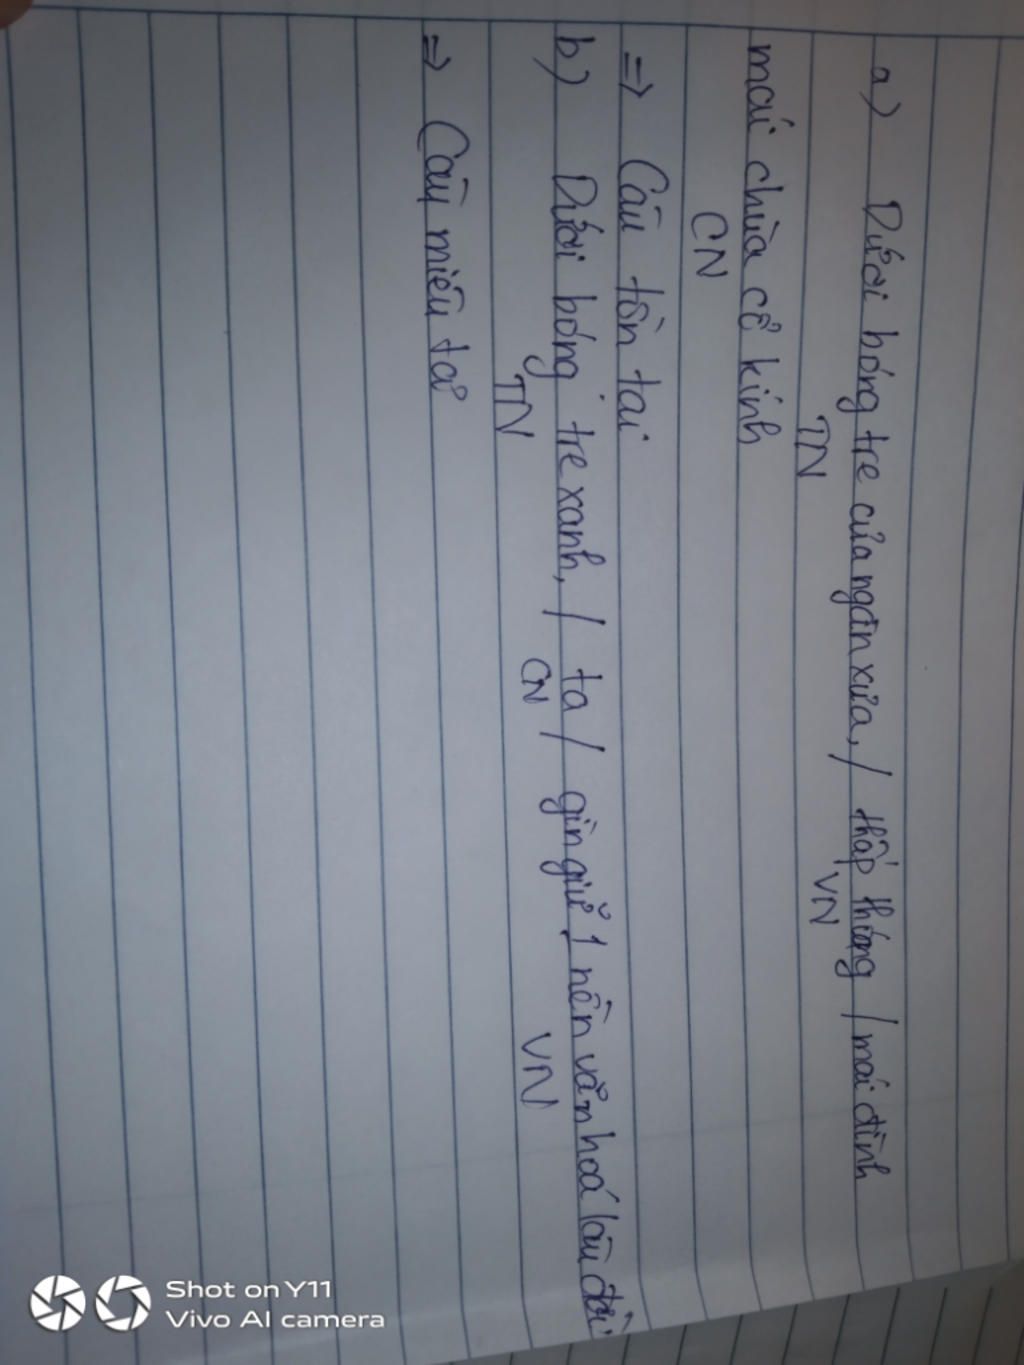 a) Dưới bóng tre của ngàn xưa, / thấp thoáng / mái đình
TN VN
mái chùa cổ kính
CN
=> Câu tồn tại
b) Dưới bóng tre xanh, / ta / gìn giữ 1 nền văn hoá lâu đời
TN CN VN
=> Câu miêu tả
Shot on Y11
Vivo AI camera